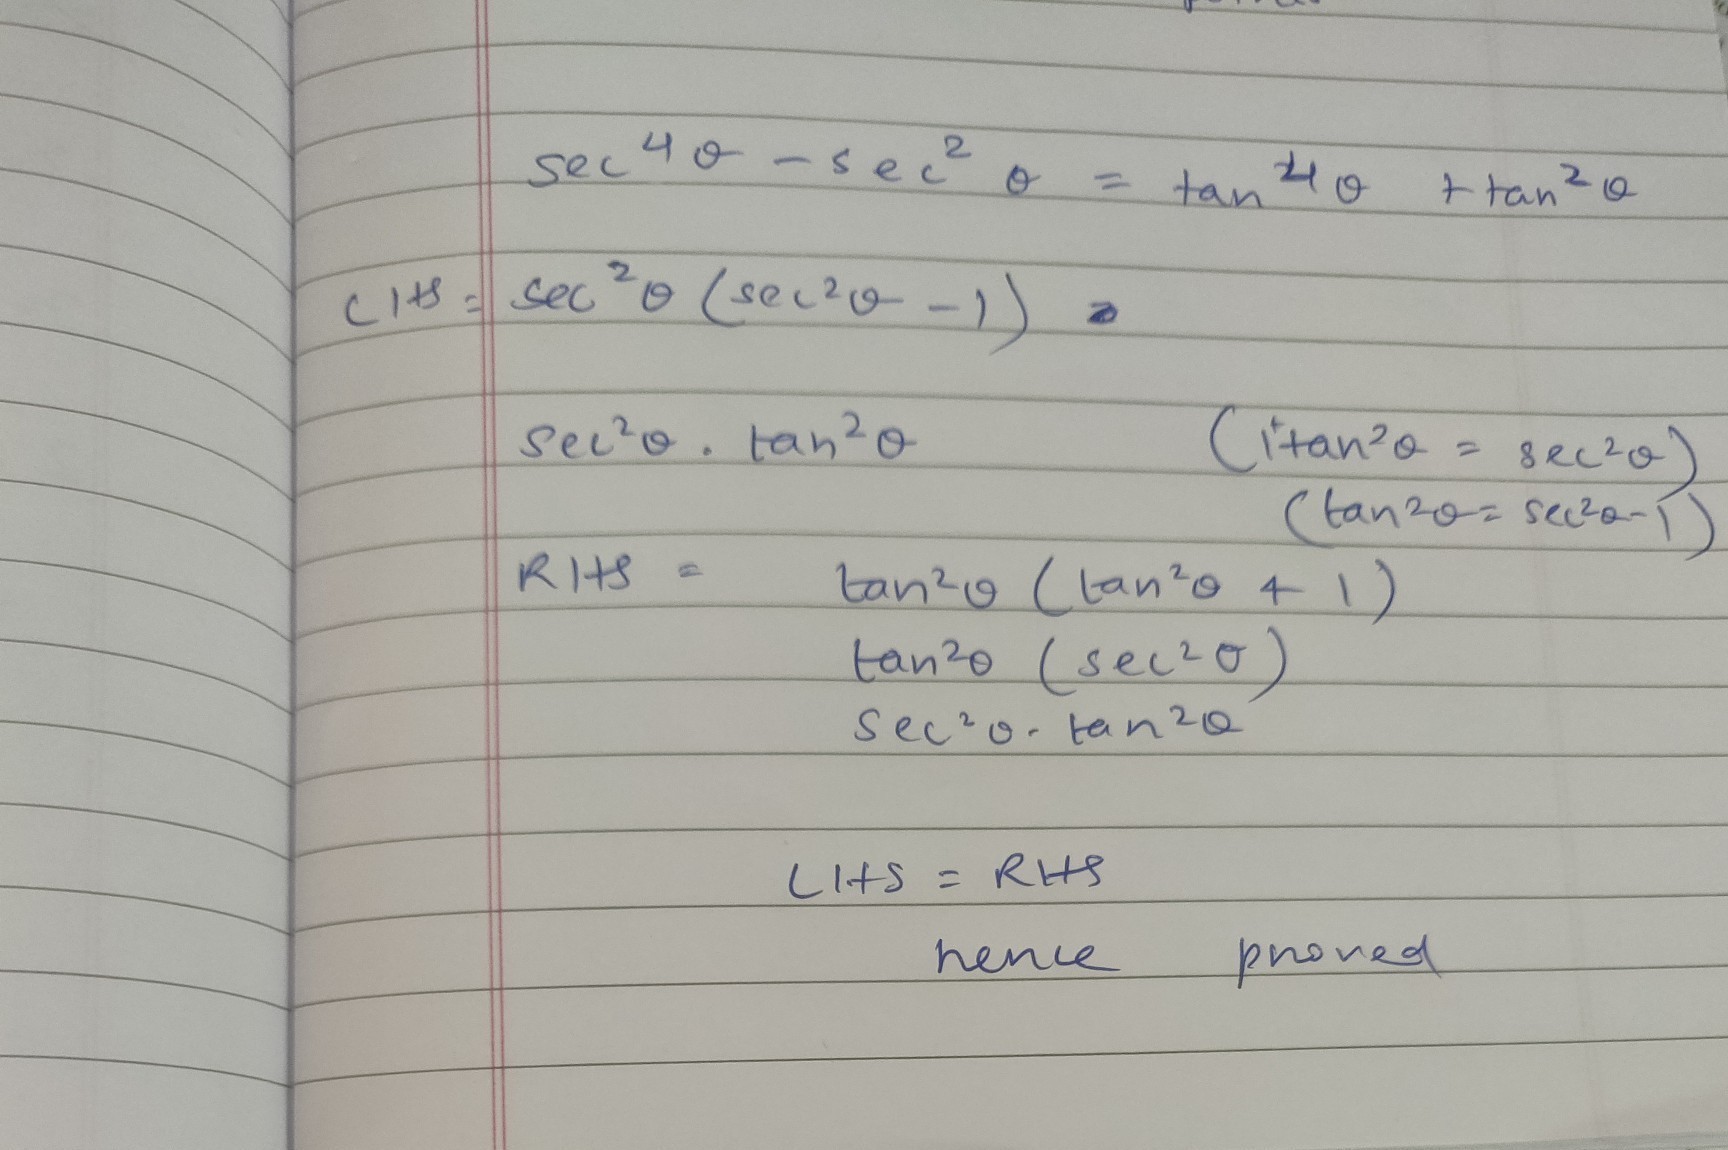 sec⁴θ - sec²θ = tan⁴θ + tan²θ
LHS = sec²θ (sec²θ - 1)
sec²θ . tan²θ (1+tan²θ = sec²θ)
(tan²θ = sec²θ-1)
RHS = tan²θ (tan²θ + 1)
tan²θ (sec²θ)
sec²θ. tan²θ
LHS = RHS
hence proved